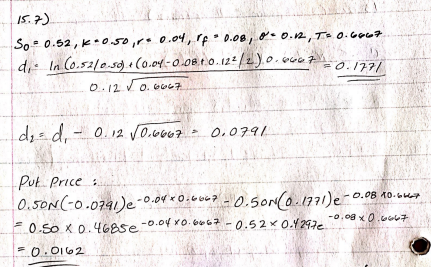 15.7)
S₀ = 0.52, K = 0.50, r = 0.04, rf = 0.08, σ = 0.12, T = 0.6667
d₁ = ln(0.52/0.50) + (0.04 - 0.08 + 0.12²/2) 0.6667 = 0.1771
0.12 √0.6667
d₂ = d₁ - 0.12 √0.6667 = 0.0791
Put Price :
0.50N(-0.0791)e^-0.04×0.6667 - 0.50N(0.1771)e^-0.08×0.6667
= 0.50 × 0.4685e^-0.04×0.6667 - 0.52 × 0.4297e^-0.08×0.6667
= 0.0162